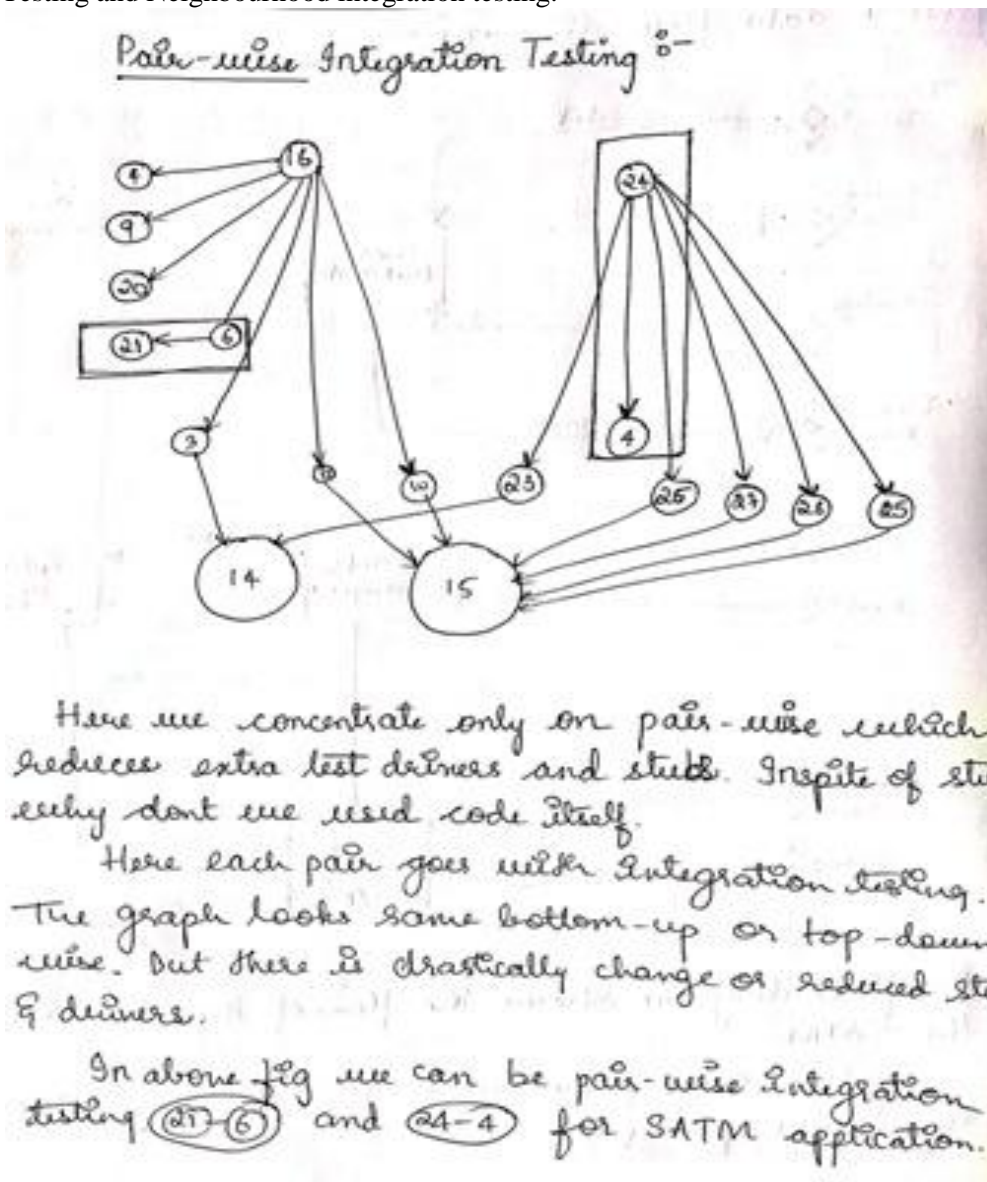 Testing and Neighbourhood integration testing.
Pair-wise Integration Testing :-
16
4
24
9
20
21 6
4
3
10
23
26
27
25
14
15
Here we concentrate only on pair-wise which
reduces extra test drivers and stubs. Inspite of stu
why dont we used code itself.
Here each pair goes with Integration testing.
The graph looks same bottom-up or top-down
wise. But there is drastically change or reduced stu
& drivers.
In above fig we can be pair-wise integration
testing 21-6 and 24-4 for SATM application.